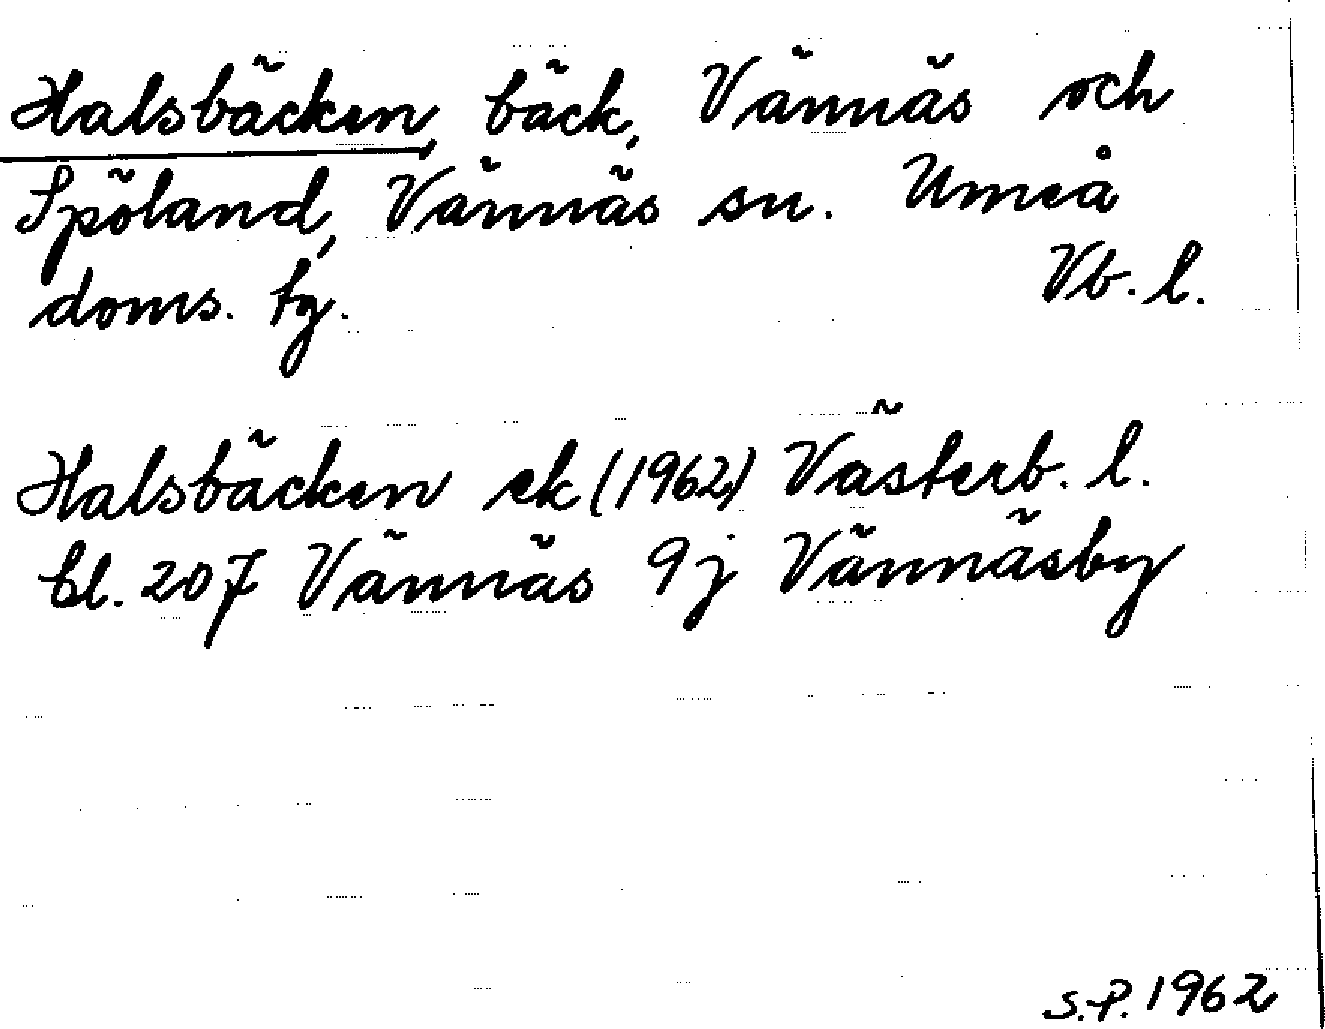 Halsbäcken, bäck, Vännäs och
Spöland, Vännäs sn. Umeå
doms. tg. Vb. l.
Halsbäcken ek (1962) Västerb. l.
bl. 207 Vännäs 9j Vännäsby
S.P. 1962